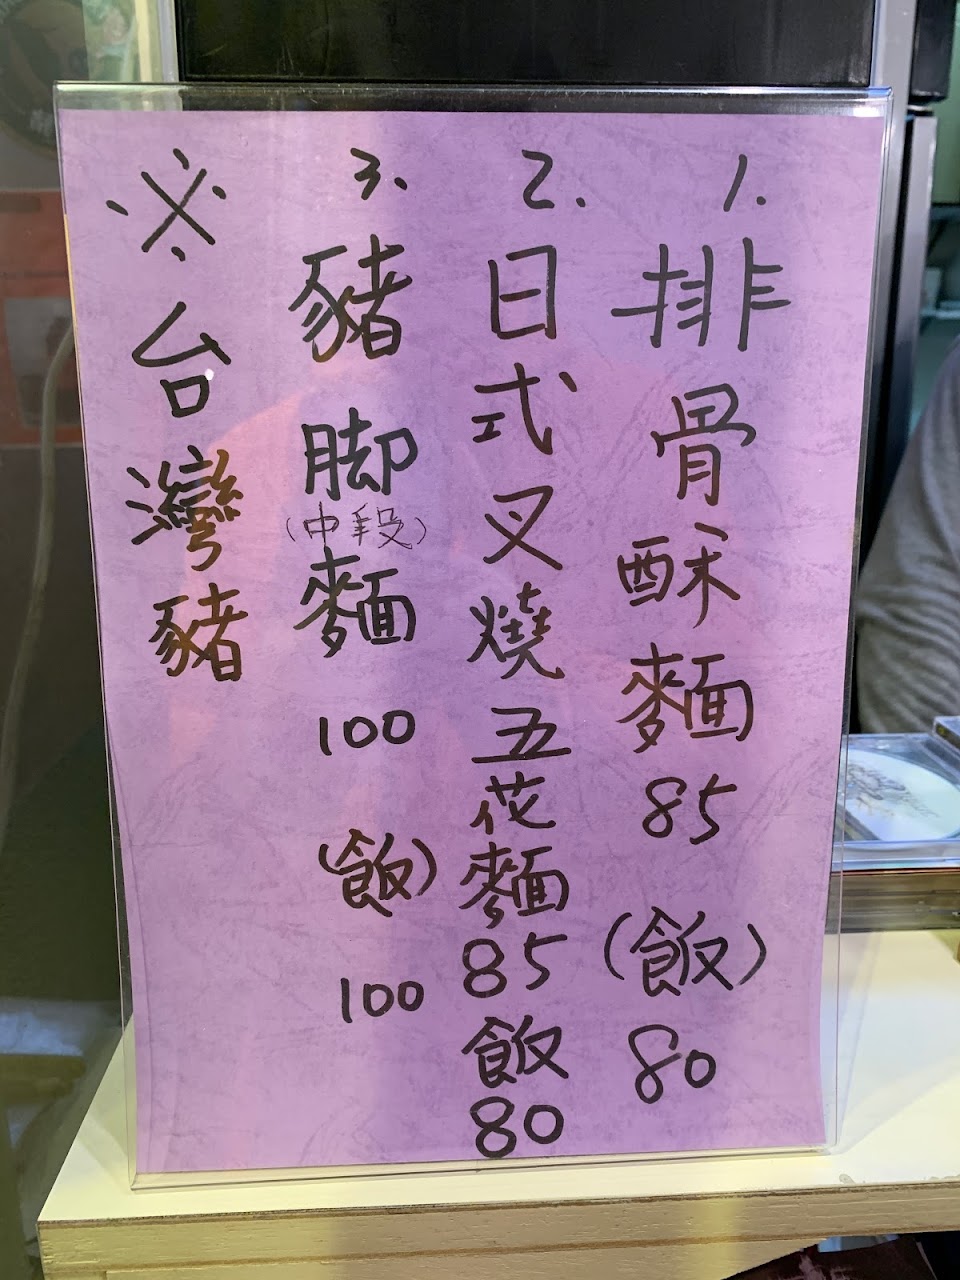 1.排骨酥麵85(飯)80
2.日式叉燒五花麵85飯80
3.豬脚(中段)麵100(飯)100
※台灣豬